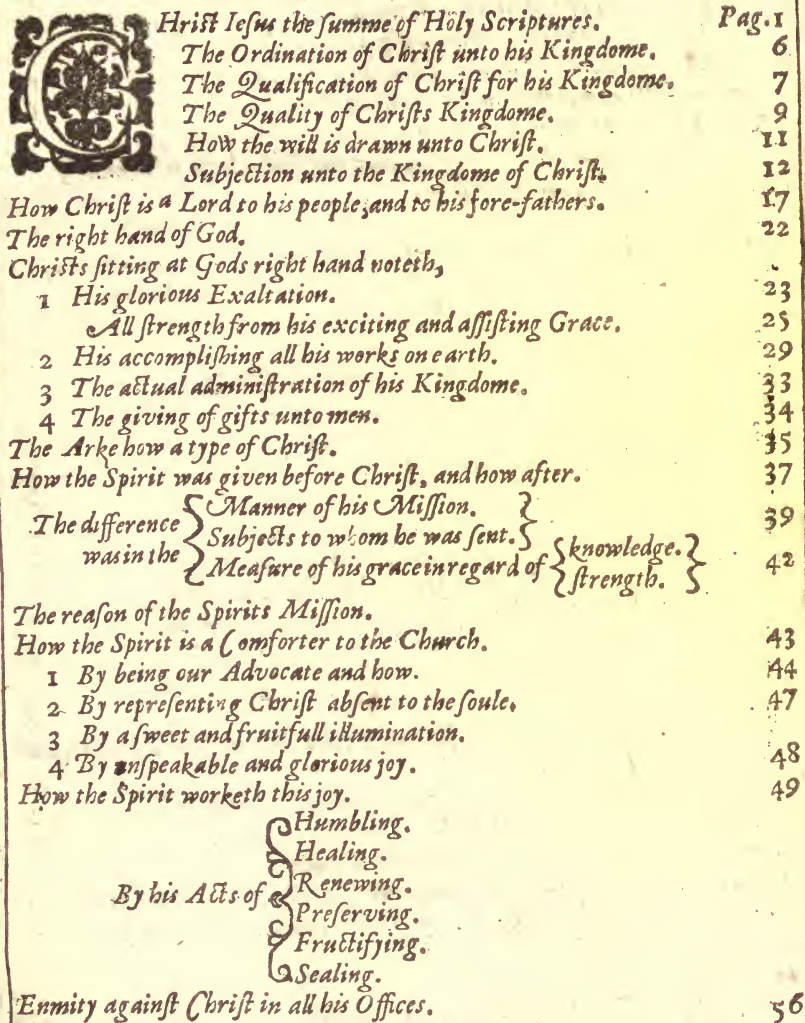 CHrist Iesus the summe of Holy Scriptures. Pag.1
The Ordination of Christ unto his Kingdome. 6
The Qualification of Christ for his Kingdome. 7
The Quality of Christs Kingdome. 9
How the will is drawn unto Christ. 11
Subjection unto the Kingdome of Christ. 12
How Christ is a Lord to his people, and to his fore-fathers. 17
The right hand of God. 22
Christs sitting at Gods right hand noteth,
1 His glorious Exaltation. 23
All strength from his exciting and assisting Grace. 25
2 His accomplishing all his works on earth. 29
3 The actual administration of his Kingdome. 33
4 The giving of gifts unto men. 34
The Arke how a type of Christ. 35
How the Spirit was given before Christ, and how after. 37
The difference was in the { Manner of his Mission. }
Subjects to whom he was sent. } 39
Measure of his grace in regard of { knowledge. strength. } 42
The reason of the Spirits Mission.
How the Spirit is a Comforter to the Church. 43
1 By being our Advocate and how. 44
2 By representing Christ absent to the soule. 47
3 By a sweet and fruitfull illumination.
4 By unspeakable and glorious joy. 48
How the Spirit worketh this joy. 49
Humbling.
Healing.
By his Acts of { Renewing.
Preserving.
Fructifying.
Sealing.
Enmity against Christ in all his Offices. 56